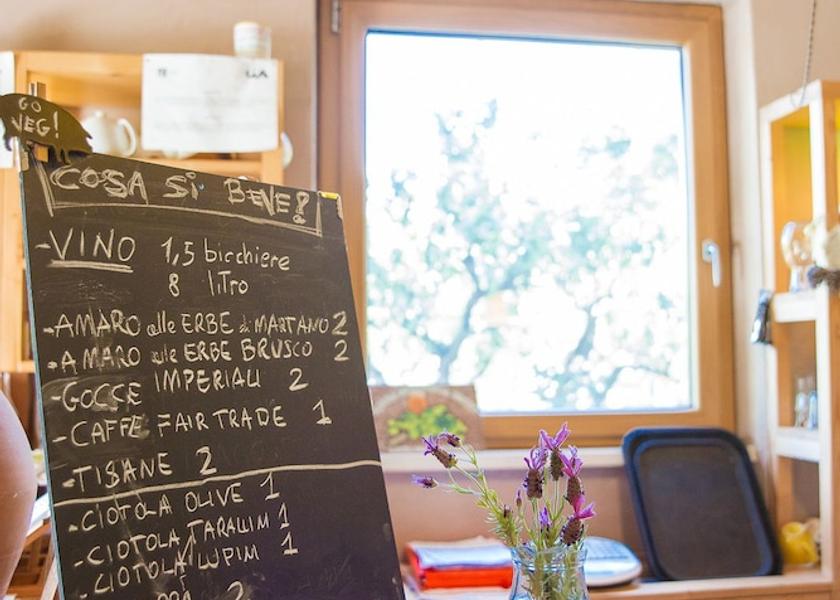 GO
VEG!
COSA SI BEVE?
-VINO 1,5 bicchiere
8 liTro
-AMARO alle ERBE di MARTANO 2
-AMARO alle ERBE BRUSCO 2
-GOCCE IMPERIALI 2
-CAFFE FAIRTRADE 1
-TISANE 2
-CIOTOLA OLIVE 1
-CIOTOLA TARALLIM 1
-CIOTOLA LUPIM 1
2